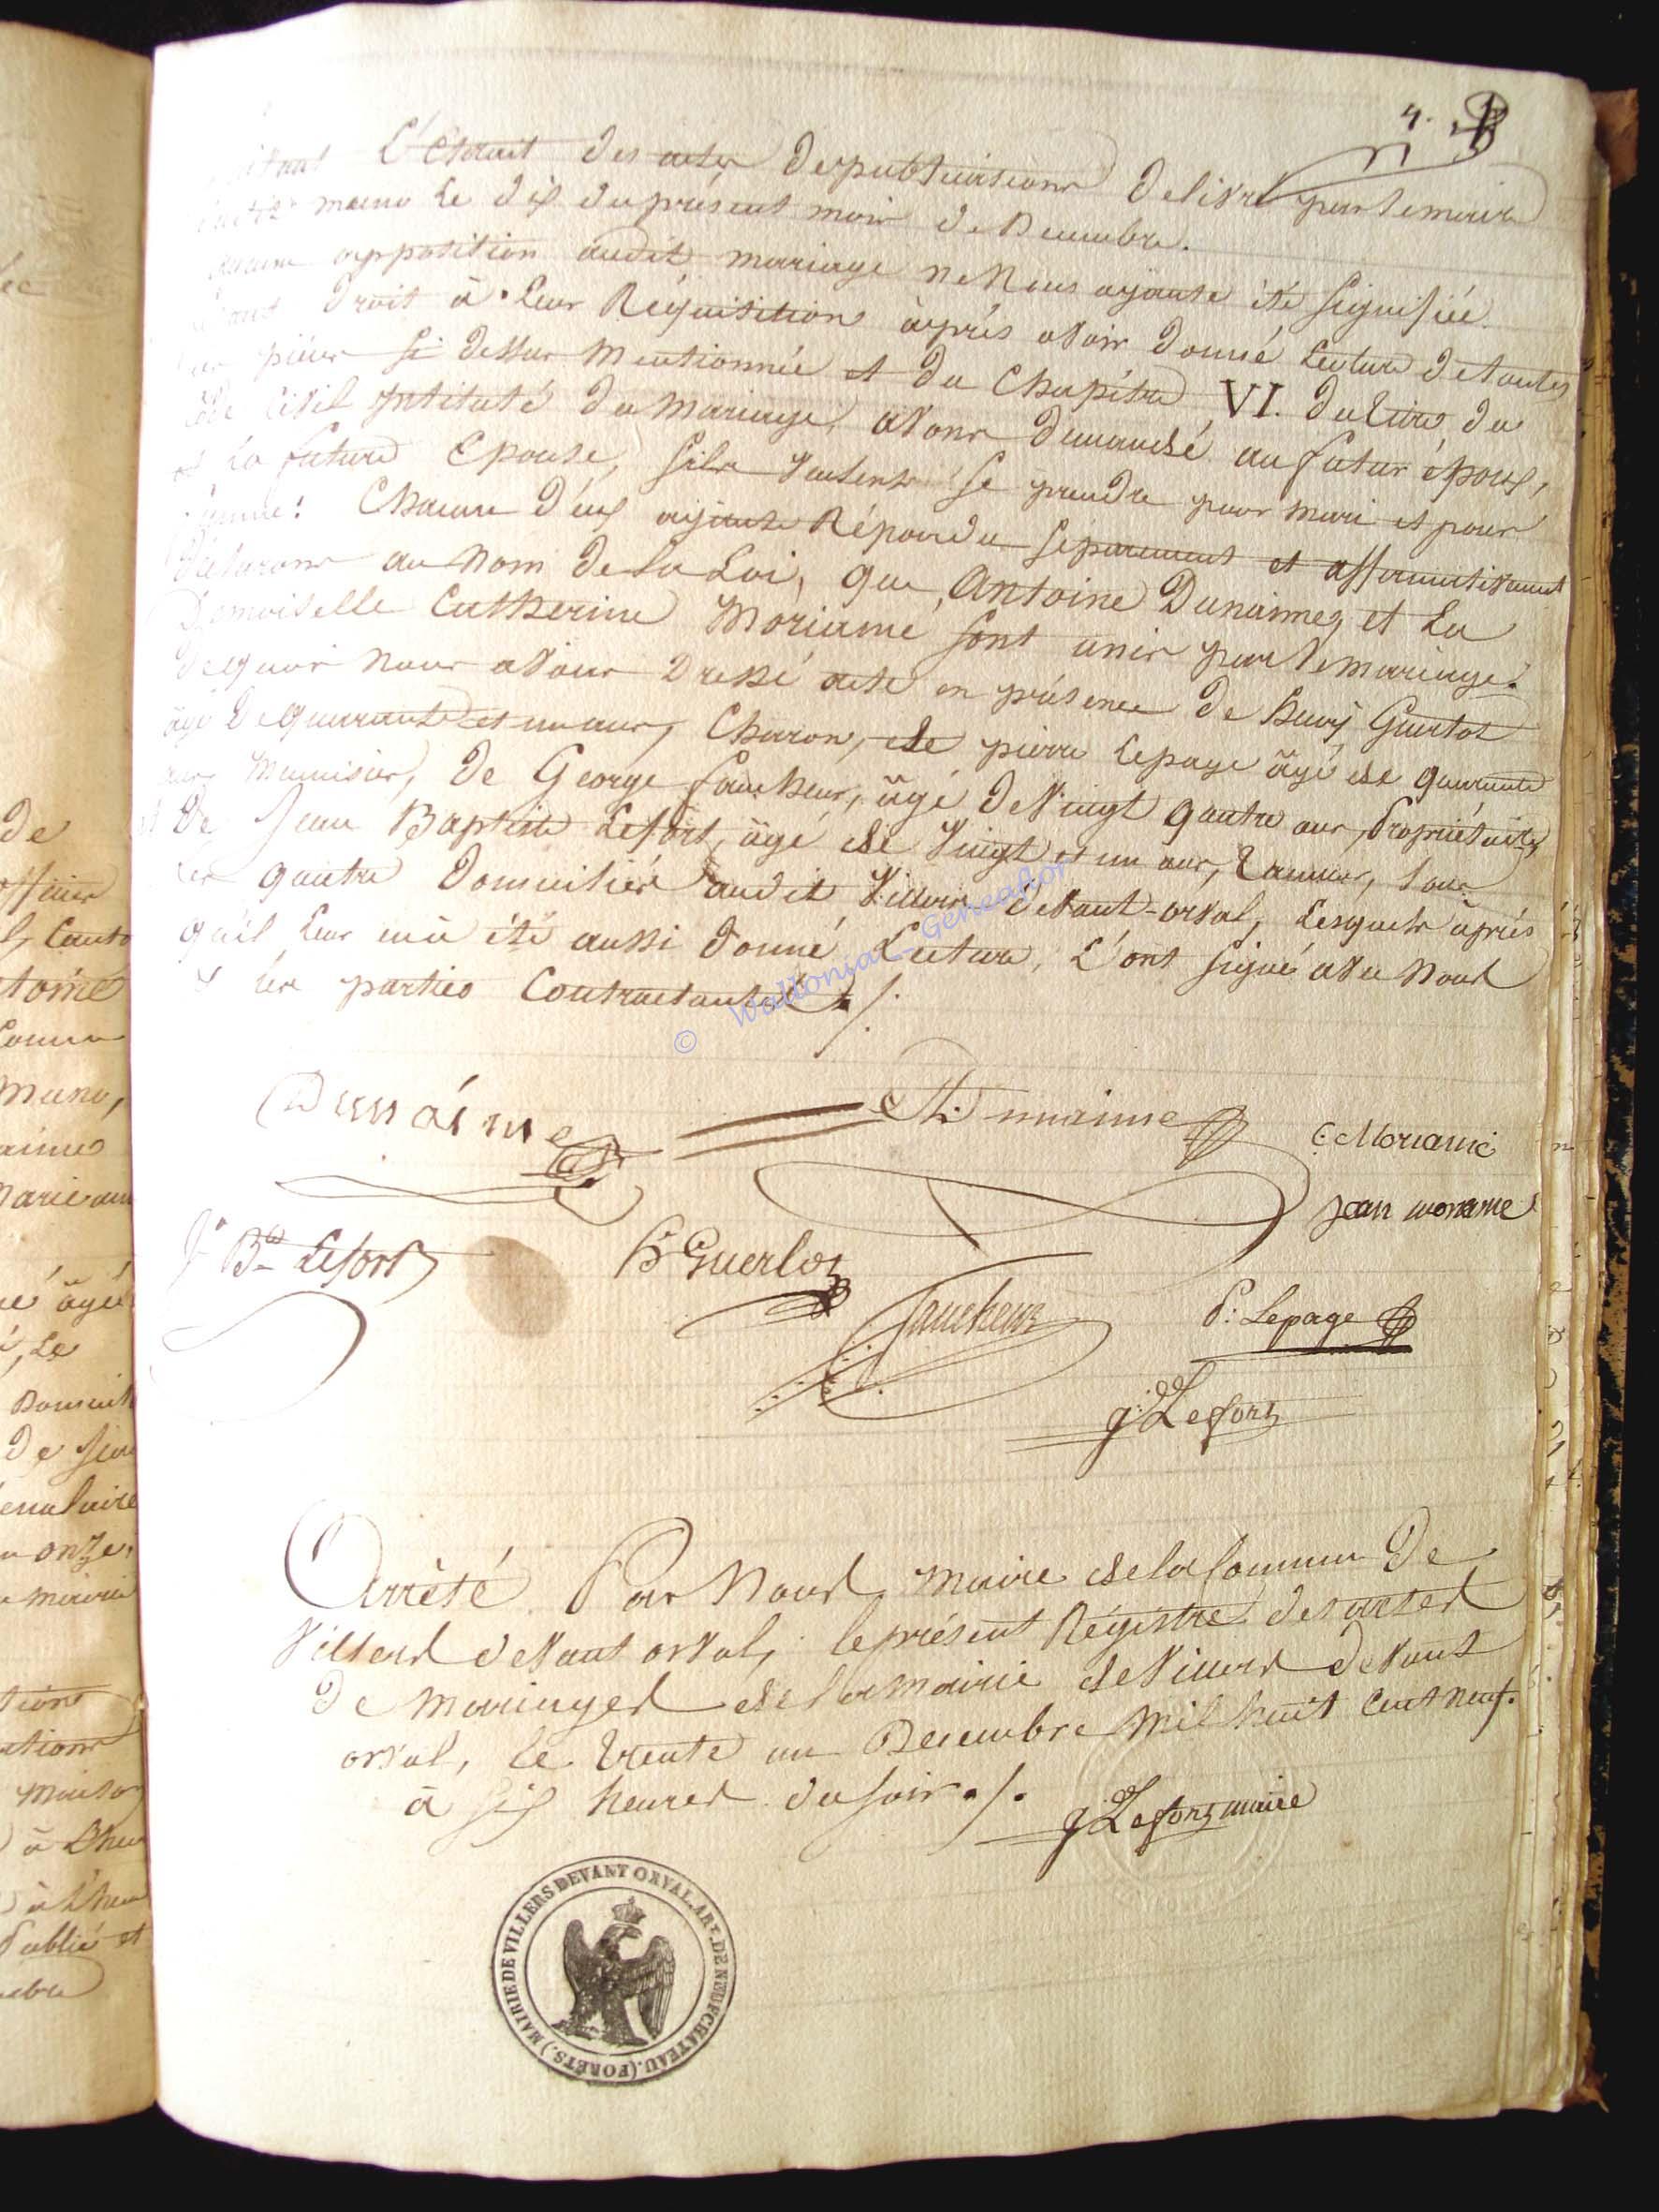 4.
L'Extrait des actes de publications delivré par le maire
muno le dix du présent mois de Decembre.
aucune opposition audit mariage ne Nous ayante été signifiée
droit à Leur Réquisition àprés avoir donné Lecture de toutes
les piéces si dessus Mentionnée et du Chapitre VI. du titre du
Code Civil Intitulé du Mariage, avons demandé au futur époux,
et La future Epouse, sils veulent se prendre pour mari et pour
femme: Chacun d'eux ayante Répondu séparement et affermativement
Déclarons au Nom de la Loi, que Antoine Dunaime, et La
Demoiselle Catherine Moriamé sont unis par le mariage.
De quoi Nous avons Dressé acte en présence de henry Guerlot
âgé de quarante et un ans, Charon, de pierre Lepage âgé de quarante
ans Menuisier, de George faucheur, âgé de Vingt quatre ans, Propriétaire,
et De Jean Baptiste Lefort, âgé de Vingt et un ans, tanneur, tous
Les quatre domiciliés audit Villers devant-orval, Lesquels àprés
qu'il Leur in à été aussi donné Lecture, L'ont signé avec Nous
et les parties Contractantes ./.
Dunaime
Dunaime
C: Moriamé
Jean moriame
J. Bte Lefort
h Guerlot
faucheur
P: Lepage
g: Lefort
Arrêté Par Nous, maire de la Commune De
Villers devant orval, le présent Régistre des actes
De Mariages de la mairie de Villers devant
orval, le trente un Decembre Mil huit Cent neuf.
à six heures du soir ./.
g: Lefort maire
MAIRIE DE VILLERS DEVANT ORVAL. ART. DE NEUFCHATEAU. (FORÊTS.)
© Wallonia-Geneafior